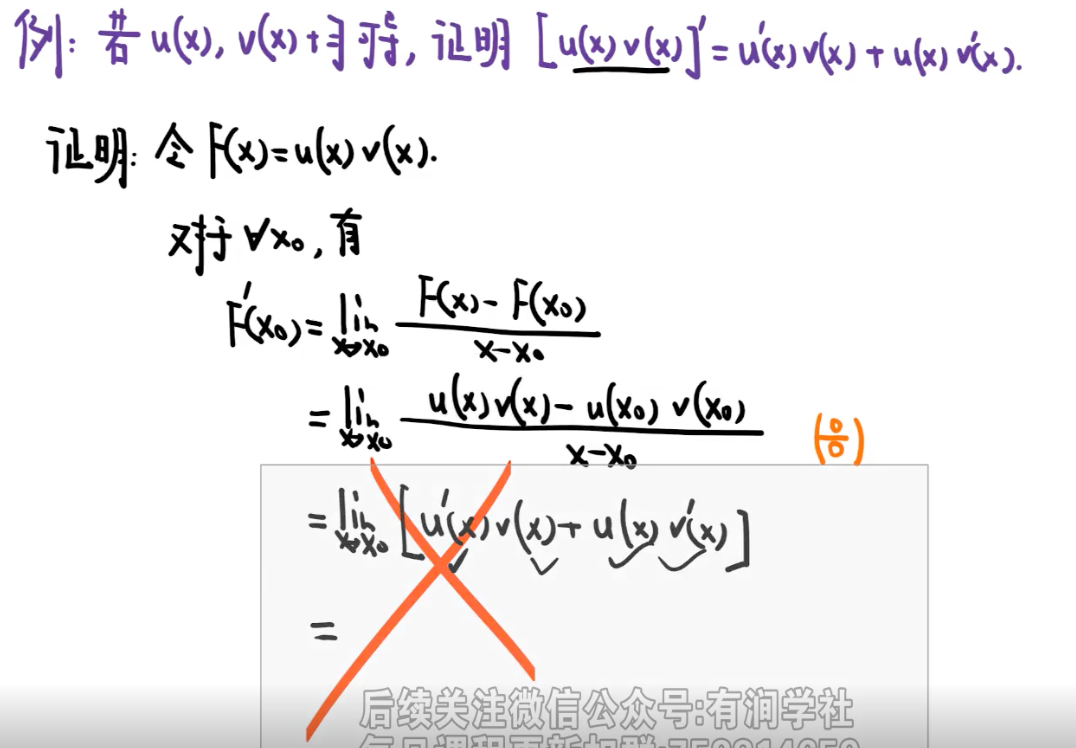 例: 若 u(x), v(x) 可导, 证明 [u(x) v(x)]' = u'(x) v(x) + u(x) v'(x).
证明: 令 F(x) = u(x) v(x).
对于 ∀x₀, 有
F'(x₀) = lim_{x→x₀} \frac{F(x) - F(x₀)}{x - x₀}
= lim_{x→x₀} \frac{u(x) v(x) - u(x₀) v(x₀)}{x - x₀} (\frac{0}{0})
= lim_{x→x₀} [u'(x) v(x) + u(x) v'(x)]
=
后续关注微信公众号:有润学社